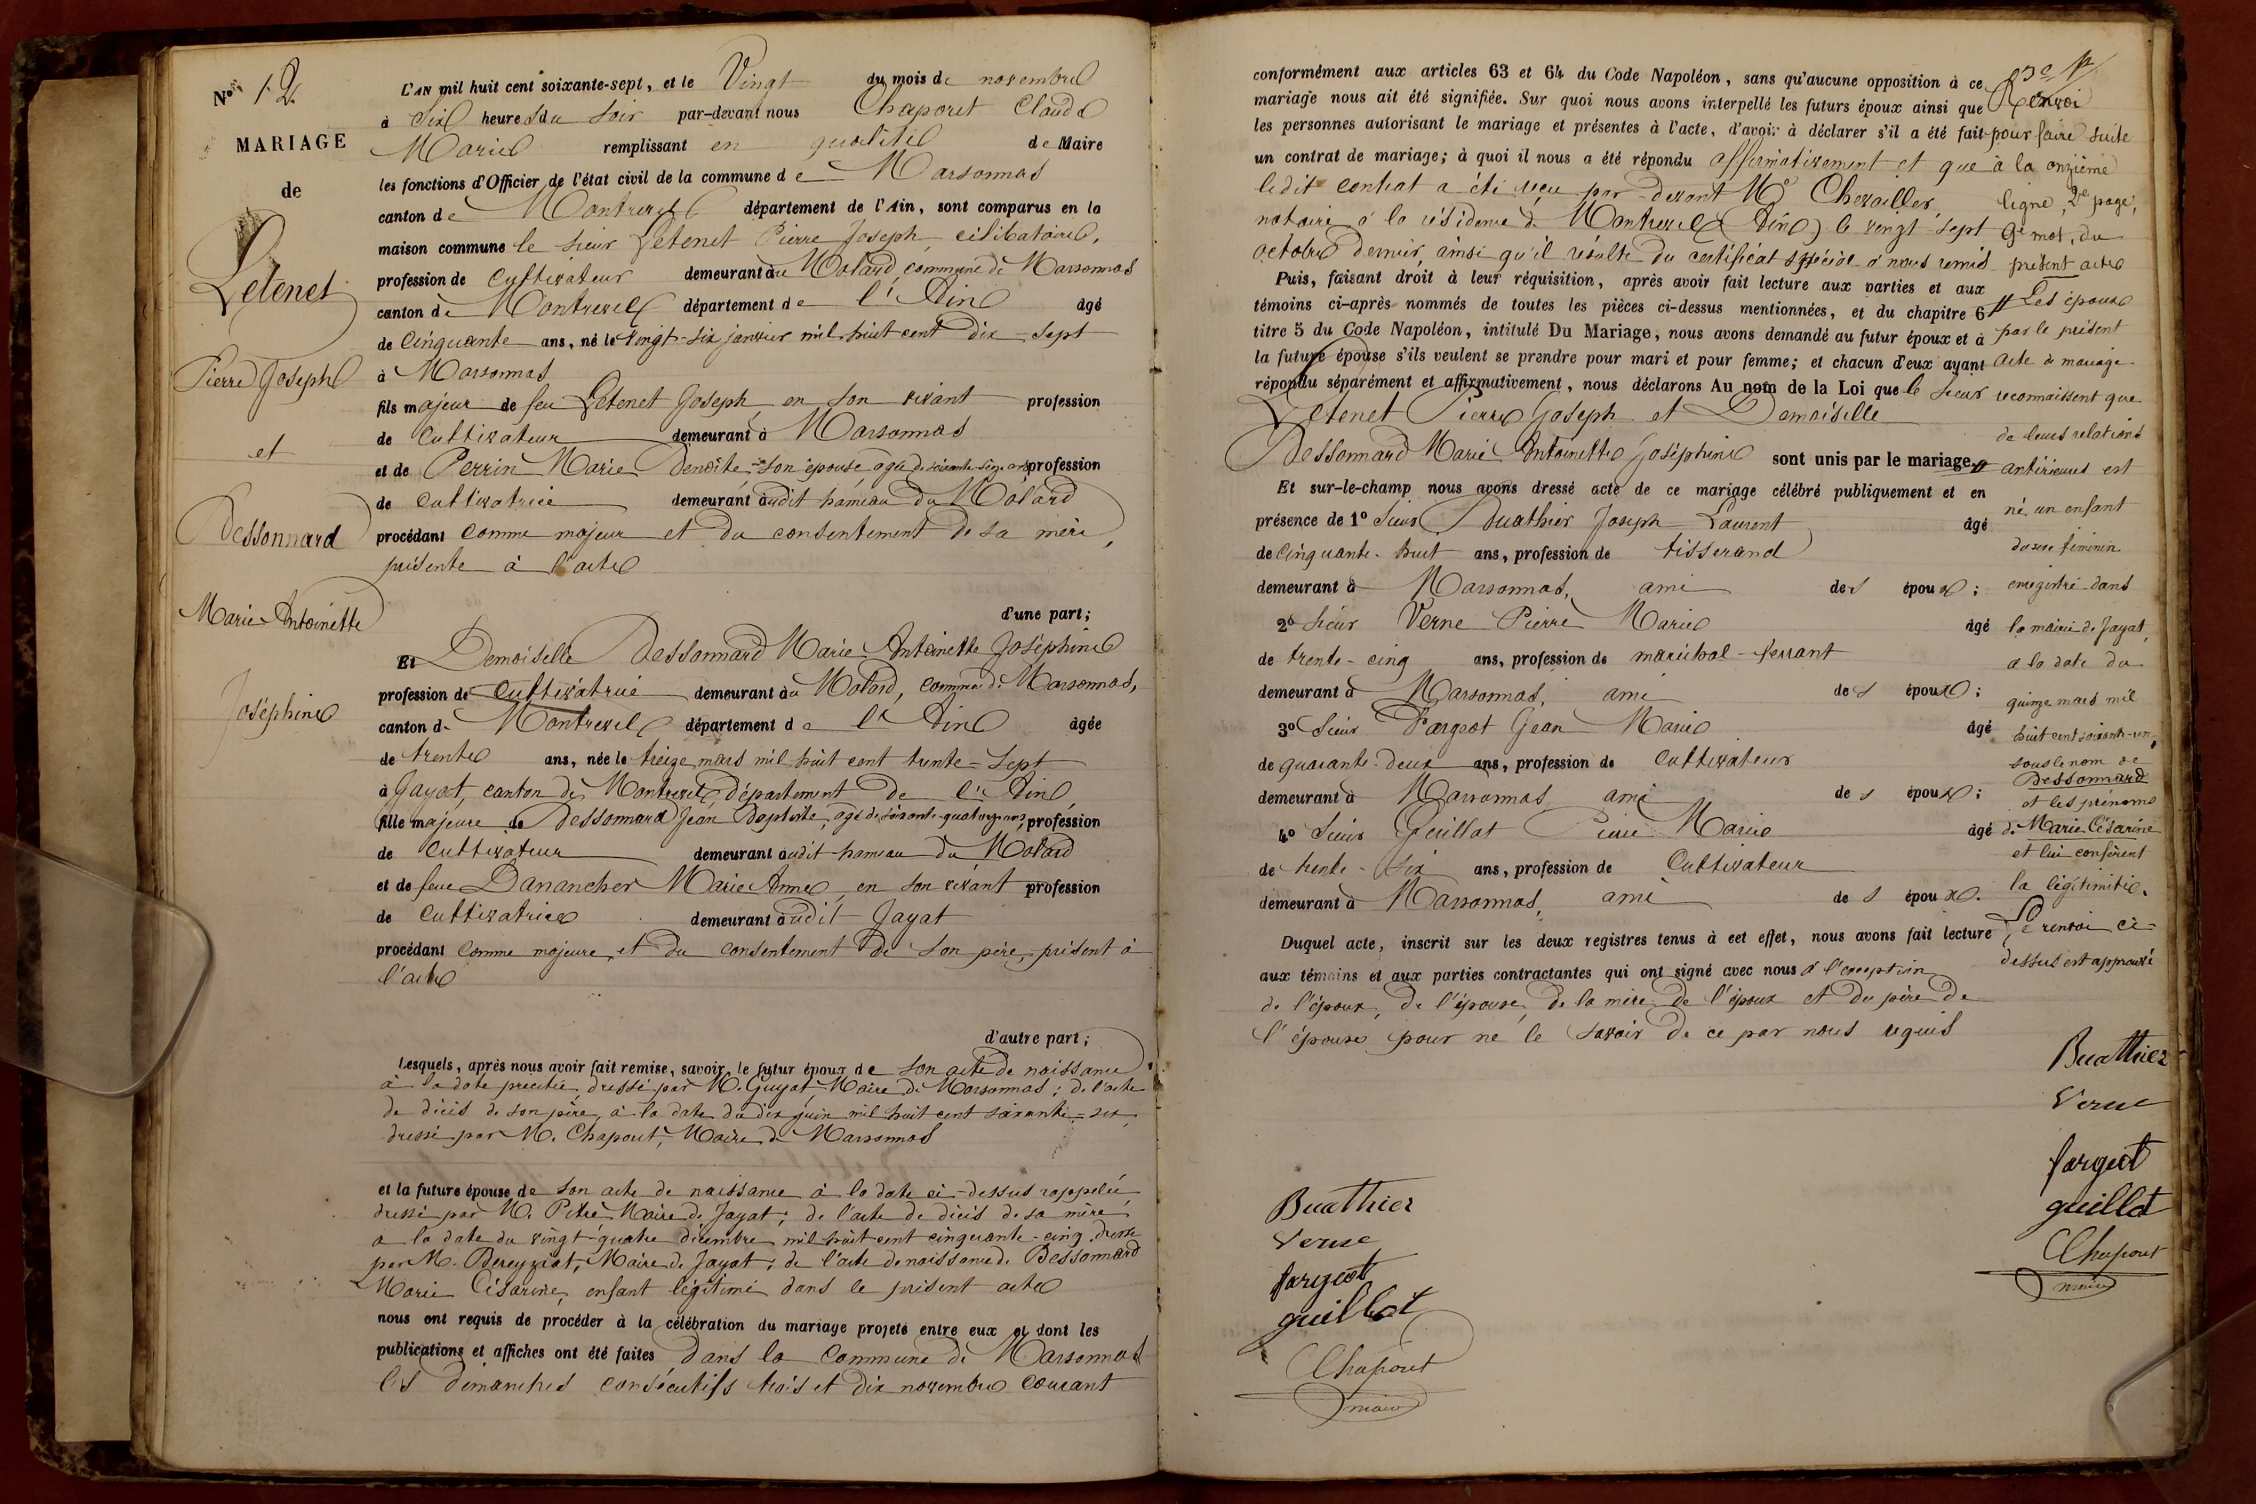 N° 12
MARIAGE
de
Letenet
Pierre Joseph
et
Bessonnard
Marie Antoinette
Joséphine
L'AN mil huit cent soixante-sept, et le Vingt du mois de novembre
à six heures du soir par-devant nous Chaporet Claude
Marie remplissant en qualité de Maire
les fonctions d'Officier de l'état civil de la commune de Marsonnas
canton de Montrevel département de l'Ain, sont comparus en la
maison commune le sieur Letenet Pierre Joseph, célibataire,
profession de cultivateur demeurant au Molard, commune de Marsonnas
canton de Montrevel département de l'Ain âgé
de cinquante ans, né le vingt-six janvier mil huit cent dix-sept
à Marsonnas
fils majeur de feu Letenet Joseph, en son vivant profession
de cultivateur demeurant à Marsonnas
et de Perrin Marie Benoîte, son épouse, âgée de soixante-cinq ans, profession
de cultivatrice demeurant audit hameau du Molard
procédant comme majeur et du consentement de sa mère,
présente à l'acte
d'une part;
Et Demoiselle Bessonnard Marie Antoinette Joséphine
profession de cultivatrice demeurant au Molard, commune de Marsonnas,
canton de Montrevel département de l'Ain âgée
de trente ans, née le treize mars mil huit cent trente-sept
à Jayat, canton de Montrevel, département de l'Ain,
fille majeure de Bessonnard Jean Baptiste, âgé de soixante-quatorze ans, profession
de cultivateur demeurant audit hameau du Molard
et de feue Danancher Marie Anne, en son vivant profession
de cultivatrice demeurant audit Jayat
procédant comme majeure, et du consentement de son père, présent à
l'acte
d'autre part;
Lesquels, après nous avoir fait remise, savoir, le futur époux de son acte de naissance
à la date précitée, dressé par M. Guyat, Maire de Marsonnas; de l'acte
de décès de son père, à la date du dix juin mil huit cent soixante-six,
dressé par M. Chapout, Maire de Marsonnas
et la future épouse de son acte de naissance à la date ci-dessus rappelée
dressé par M. Pitre Maire de Jayat; de l'acte de décès de sa mère
à la date du vingt-quatre décembre mil huit cent cinquante-cinq, dressé
par M. Bereyziat, Maire de Jayat; de l'acte de naissance de Bessonnard
Marie Césarine, enfant légitimé dans le présent acte
nous ont requis de procéder à la célébration du mariage projeté entre eux et dont les
publications et affiches ont été faites dans la commune de Marsonnas
les dimanches consécutifs trois et dix novembre courant
conformément aux articles 63 et 64 du Code Napoléon, sans qu'aucune opposition à ce
mariage nous ait été signifiée. Sur quoi nous avons interpellé les futurs époux ainsi que
les personnes autorisant le mariage et présentes à l'acte, d'avoir à déclarer s'il a été fait
un contrat de mariage; à quoi il nous a été répondu affirmativement et que
ledit contrat a été reçu par-devant Me Chevailler,
notaire à la résidence de Montrevel (Ain) le vingt-sept
octobre dernier, ainsi qu'il résulte du certificat spécial à nous remis
Puis, faisant droit à leur réquisition, après avoir fait lecture aux parties et aux
témoins ci-après nommés de toutes les pièces ci-dessus mentionnées, et du chapitre 6
titre 5 du Code Napoléon, intitulé Du Mariage, nous avons demandé au futur époux et à
la future épouse s'ils veulent se prendre pour mari et pour femme; et chacun d'eux ayant
répondu séparément et affirmativement, nous déclarons Au nom de la Loi que le sieur
Letenet Pierre Joseph et Demoiselle
Bessonnard Marie Antoinette Joséphine sont unis par le mariage.
Et sur-le-champ nous avons dressé acte de ce mariage célébré publiquement et en
présence de 1° Sieur Buathier Joseph Laurent âgé
de cinquante-huit ans, profession de tisserand
demeurant à Marsonnas, ami des époux;
2° Sieur Verne Pierre Marie âgé
de trente-cinq ans, profession de maréchal-ferrant
demeurant à Marsonnas, ami des époux;
3° Sieur Fargeot Jean Marie âgé
de quarante-deux ans, profession de cultivateur
demeurant à Marsonnas ami des époux;
4° Sieur Guillat Pierre Marie âgé
de trente-six ans, profession de cultivateur
demeurant à Marsonnas, ami des époux.
Duquel acte, inscrit sur les deux registres tenus à cet effet, nous avons fait lecture
aux témoins et aux parties contractantes qui ont signé avec nous à l'exception
de l'époux, de l'épouse, de la mère de l'époux et du père de
l'épouse pour ne le savoir de ce par nous requis
Buathier
Verne
fargeot
guillot
Chapout
maire
Renvoi
pour faire suite
à la onzième
ligne, 2e page,
9e mot, du
présent acte
Les époux
par le présent
acte de mariage
reconnaissent que
de leurs relations
antérieures est
né un enfant
du sexe féminin
enregistré dans
la mairie de Jayat,
à la date du
quinze mars mil
huit cent soixante-un,
sous le nom de
Bessonnard
et les prénoms
de Marie Césarine
et lui confèrent
la légitimité.
Le renvoi ci-
dessus est approuvé
Buathier
Verne
fargeot
guillot
Chapout
maire